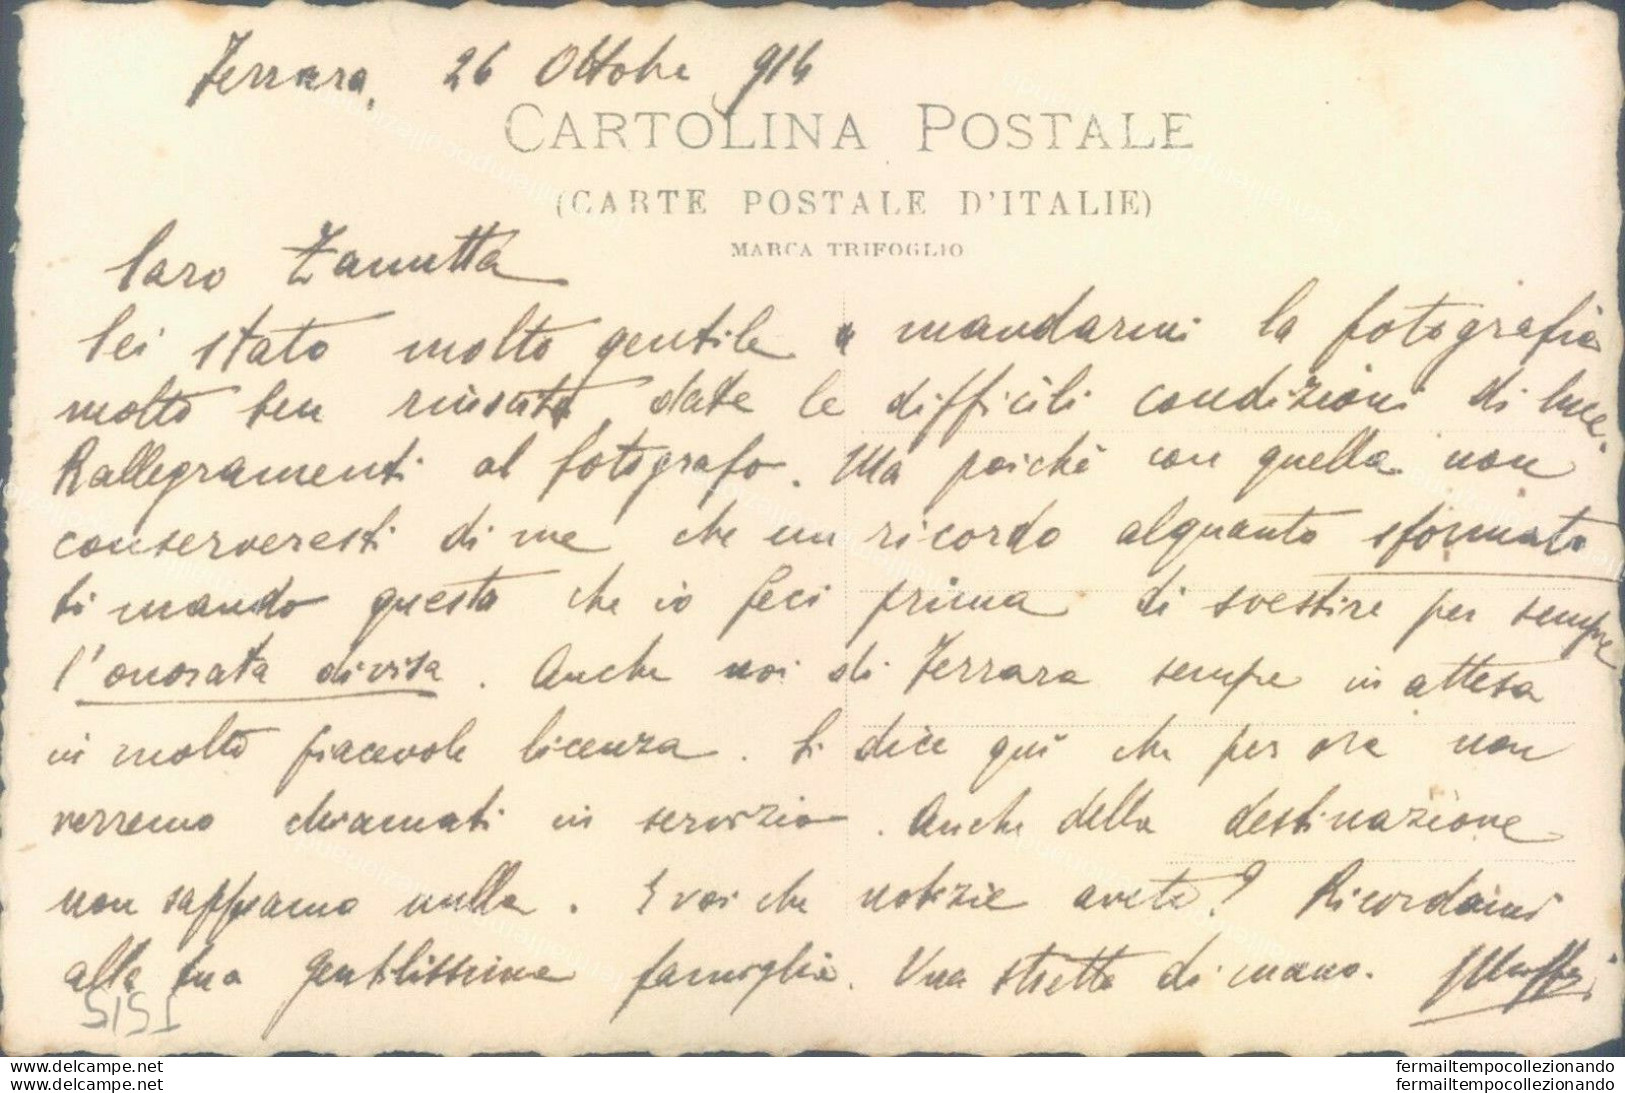 Ferrara, 26 Ottobre 914
CARTOLINA POSTALE
(CARTE POSTALE D'ITALIE)
MARCA TRIFOGLIO
Caro Zanutta
Sei stato molto gentile a mandarmi la fotografia
molto ben riuscita date le difficili condizioni di luce.
Rallegramenti al fotografo. Ma poichè con quella non
conserveresti di me che un ricordo alquanto sformato
ti mando questa che io feci prima di svestire per sempre
l'onorata divisa. Anche noi di Ferrara sempre in attesa
in molto piacevole licenza. Si dice qui che per ora non
verremo chiamati in servizio. Anche della destinazione
non sappiamo nulla. E voi che notizie avete? Ricordami
alla tua gentilissima famiglia. Una stretta di mano.
5151
fermailtempocollezionando
fermailtempocollezionando
www.delcampe.net
www.delcampe.net